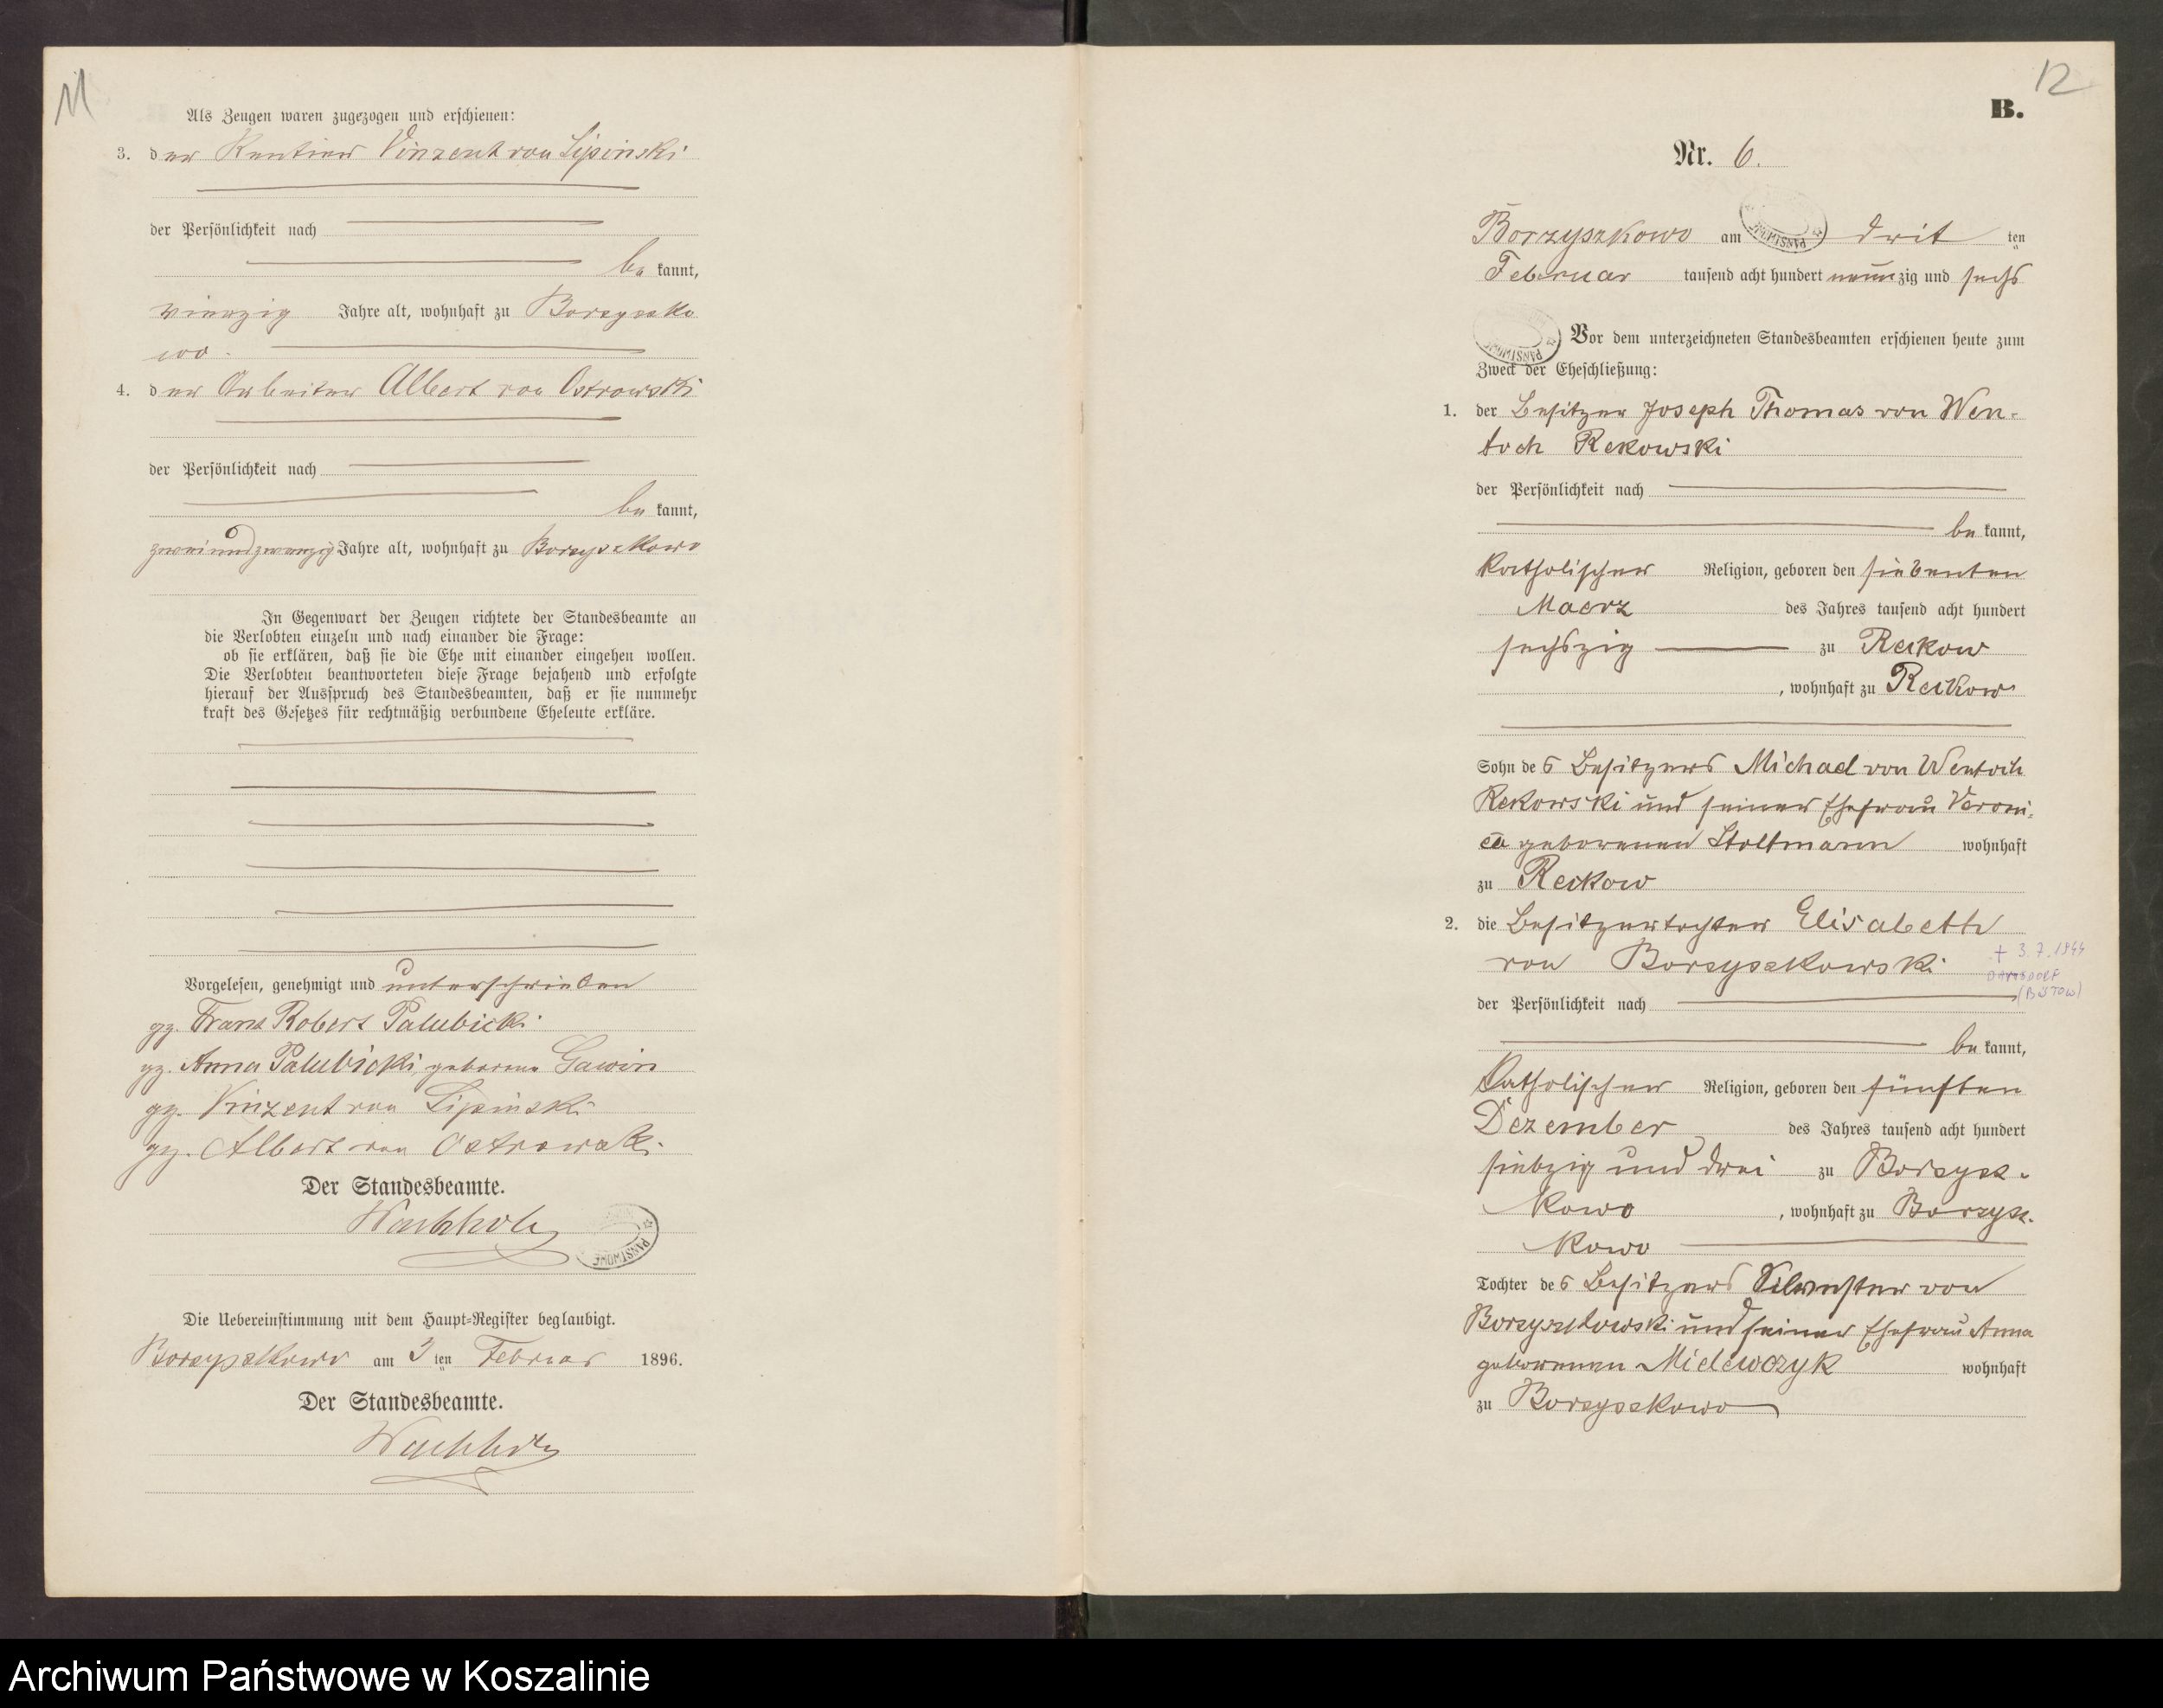 11
Als Zeugen waren zugezogen und erschienen:
3. der Rentier Vinzent von Lipinski
der Persönlichkeit nach
be kannt,
vierzig Jahre alt, wohnhaft zu Borzyszko
wo.
4. der Arbeiter Albert von Ostrowski
der Persönlichkeit nach
be kannt,
zweiundzwanzig Jahre alt, wohnhaft zu Borzyszkowo
In Gegenwart der Zeugen richtete der Standesbeamte an
die Verlobten einzeln und nach einander die Frage:
ob sie erklären, daß sie die Ehe mit einander eingehen wollen.
Die Verlobten beantworteten diese Frage bejahend und erfolgte
hierauf der Ausspruch des Standesbeamten, daß er sie nunmehr
kraft des Gesetzes für rechtmäßig verbundene Eheleute erkläre.
Vorgelesen, genehmigt und unterschrieben
gz. Franz Robert Palubicki
gz. Anna Palubicki, geborene Gawin
gz. Vinzent von Lipinski
gz. Albert von Ostrowski
Der Standesbeamte.
Wachholz
PAŃSTWOWE
Die Uebereinstimmung mit dem Haupt=Register beglaubigt.
Borzyszkowo am 3 ten Februar 1896.
Der Standesbeamte.
Wachholz
12
B.
Nr. 6.
Borzyszkowo am drit ten
Februar tausend acht hundert neunzig und sechs
PAŃSTWOWE
PAŃSTWOWE
Vor dem unterzeichneten Standesbeamten erschienen heute zum
Zweck der Eheschließung:
1. der Besitzer Joseph Thomas von Wen-
toch Rekowski
der Persönlichkeit nach
be kannt,
katholischer Religion, geboren den siebenten
Maerz des Jahres tausend acht hundert
sechszig zu Reckow
, wohnhaft zu Reckow
Sohn des Besitzers Michael von Wentoch
Rekowski und seiner Ehefrau Veroni-
ca geborenen Stoltmann wohnhaft
zu Reckow
2. die Besitzertochter Elisabeth
von Borzyszkowski
+ 3.7.1944
DAMSDORF
(BÜTOW)
der Persönlichkeit nach
be kannt,
katholischer Religion, geboren den fünften
Dezember des Jahres tausend acht hundert
siebzig und drei zu Borzysz-
kowo , wohnhaft zu Borzysz-
kowo
Tochter des Besitzers Silvester von
Borzyszkowski und seiner Ehefrau Anna
geborenen Mielewczyk wohnhaft
zu Borzyszkowo
Archiwum Państwowe w Koszalinie